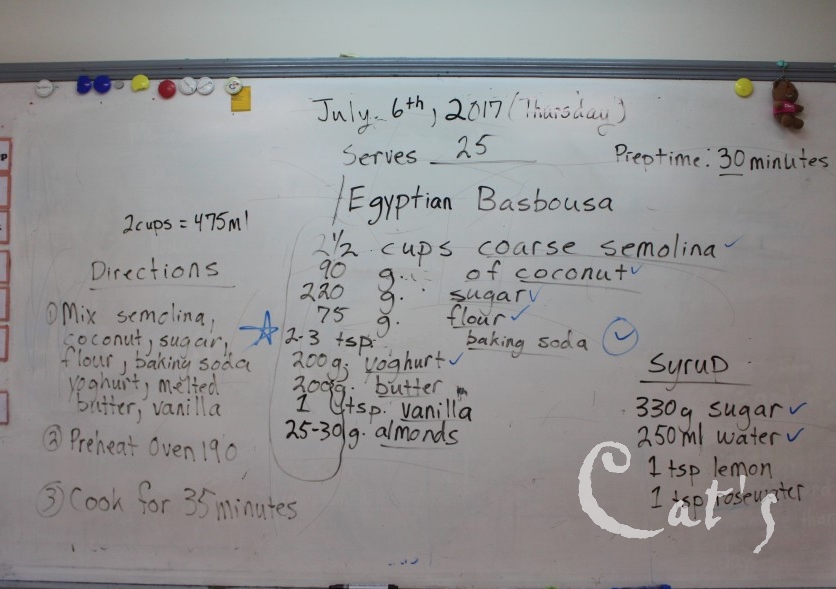 July 6th, 2017 (Thursday)
Serves 25
Prep time: 30 minutes
Egyptian Basbousa
2 cups = 475 ml
Directions
① Mix semolina,
coconut, sugar,
flour, baking soda
yoghurt, melted
butter, vanilla
② Preheat Oven 190
③ Cook for 35 minutes
2½ cups coarse semolina
90 g. of coconut
220 g. sugar
75 g. flour
2-3 tsp. baking soda
200 g. yoghurt
200 g. butter
1 tsp. vanilla
25-30 g. almonds
Syrup
330g sugar
250 ml water
1 tsp lemon
1 tsp rosewater
Cat's